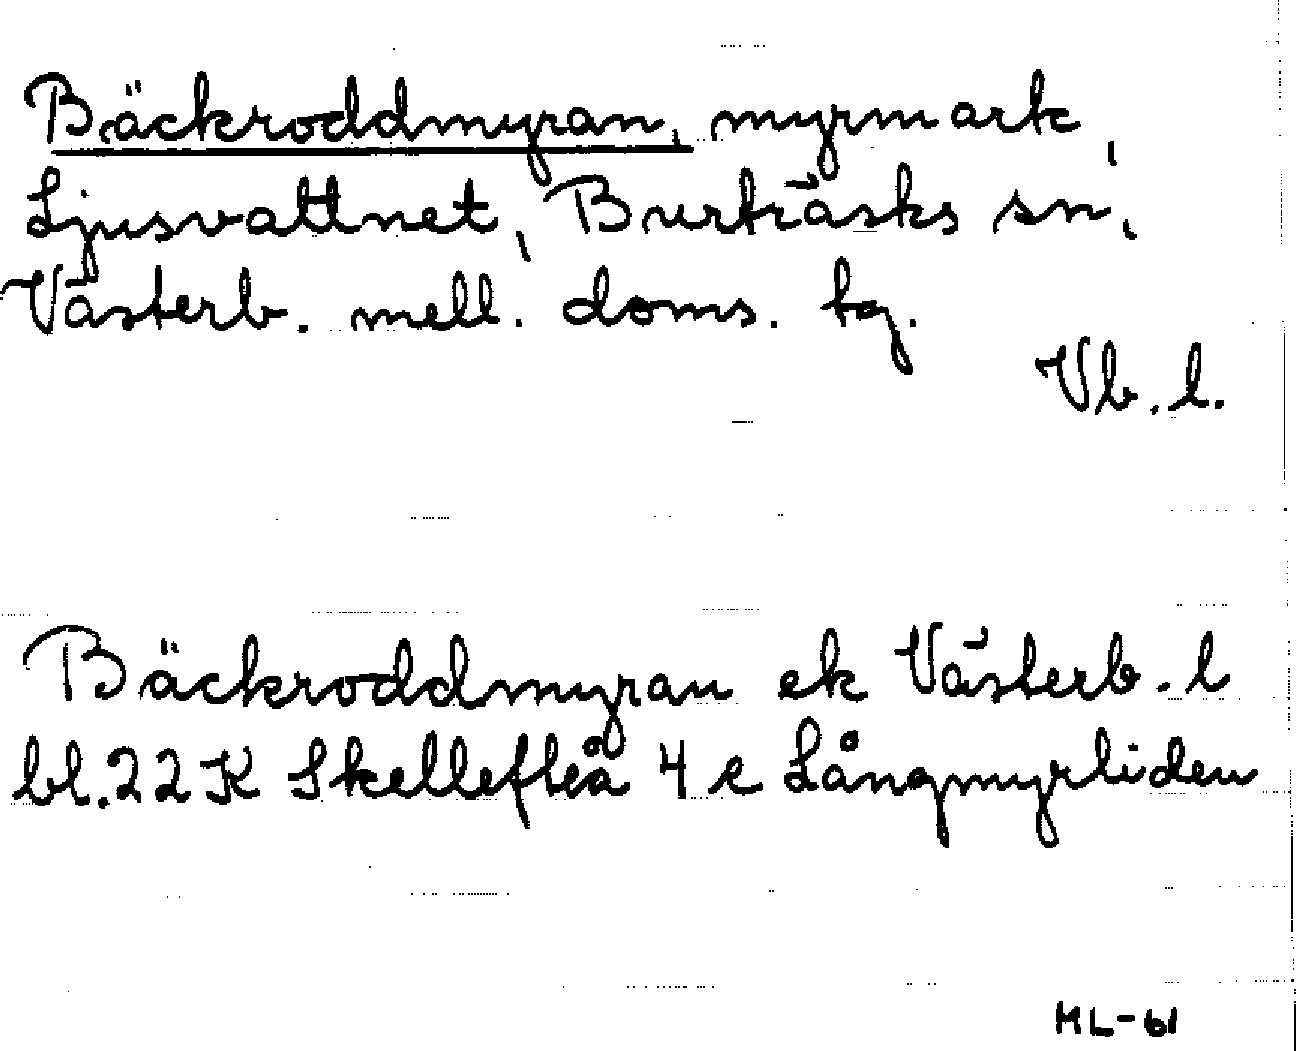 Bäckroddmyran, myrmark,
Ljusvattnet, Burträsks sn,
Västerb. mell. doms. tg.
Vb. l.
Bäckroddmyran ek Västerb. l
bl. 22 K Skellefteå 4 e Långmyrliden
HL-61